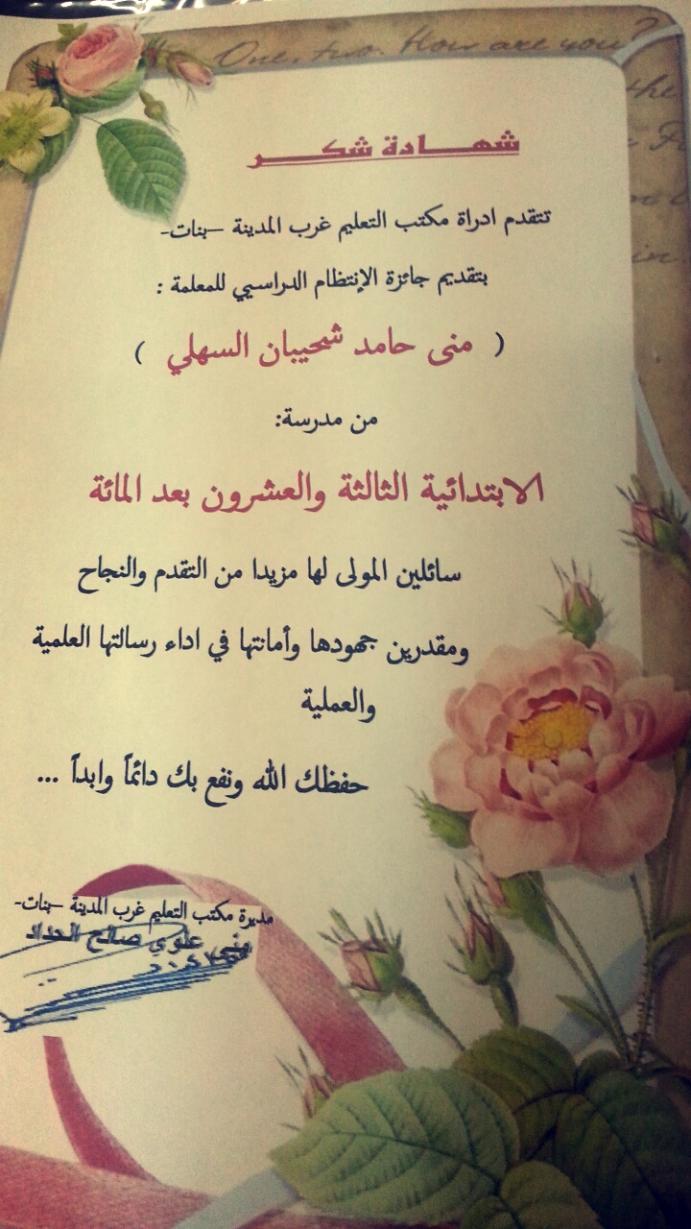 One, two. How are you?
the
in.
شهـــادة شكـــر
تتقدم ادراة مكتب التعليم غرب المدينة –بنات-
بتقديم جائزة الإنتظام الدراسي للمعلمة :
( منى حامد شحيبان السهلي )
من مدرسة:
الابتدائية الثالثة والعشرون بعد المائة
سائلين المولى لها مزيدا من التقدم والنجاح
ومقدرين جهودها وأمانتها في اداء رسالتها العلمية
والعملية
حفظك الله ونفع بك دائماً وابداً ...
مديرة مكتب التعليم غرب المدينة –بنات-
منى علوي صالح الحداد